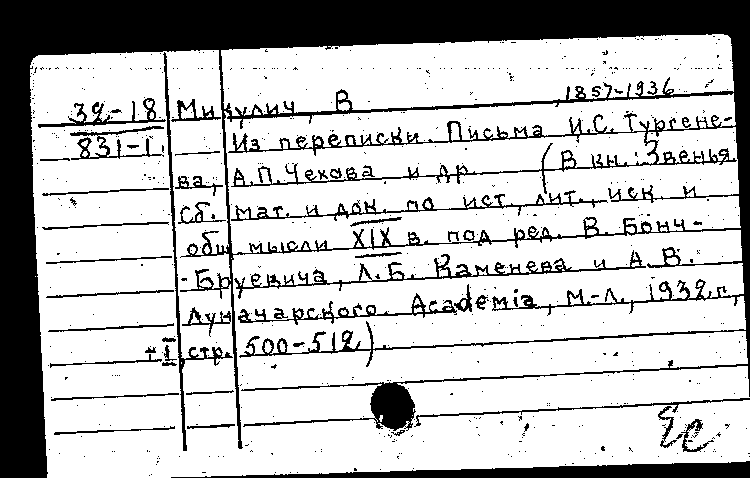 ,1857-1936
32-18 Микулич, В
831-1 Из переписки. Письма И.С. Тургене-
ва, А.П. Чехова и др. (В кн.: Звенья
Сб. мат. и док. по ист., лит., иск. и
общ. мысли XIX в. под ред. В. Бонч-
-Бруевича, Л.Б. Каменева и А.В.
Луначарского. Academia, М.-Л., 1932 г.,
т I, стр. 500-512).